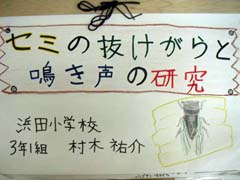 セミの抜けがらと
鳴き声の研究
浜田小学校
3年1組 村木祐介